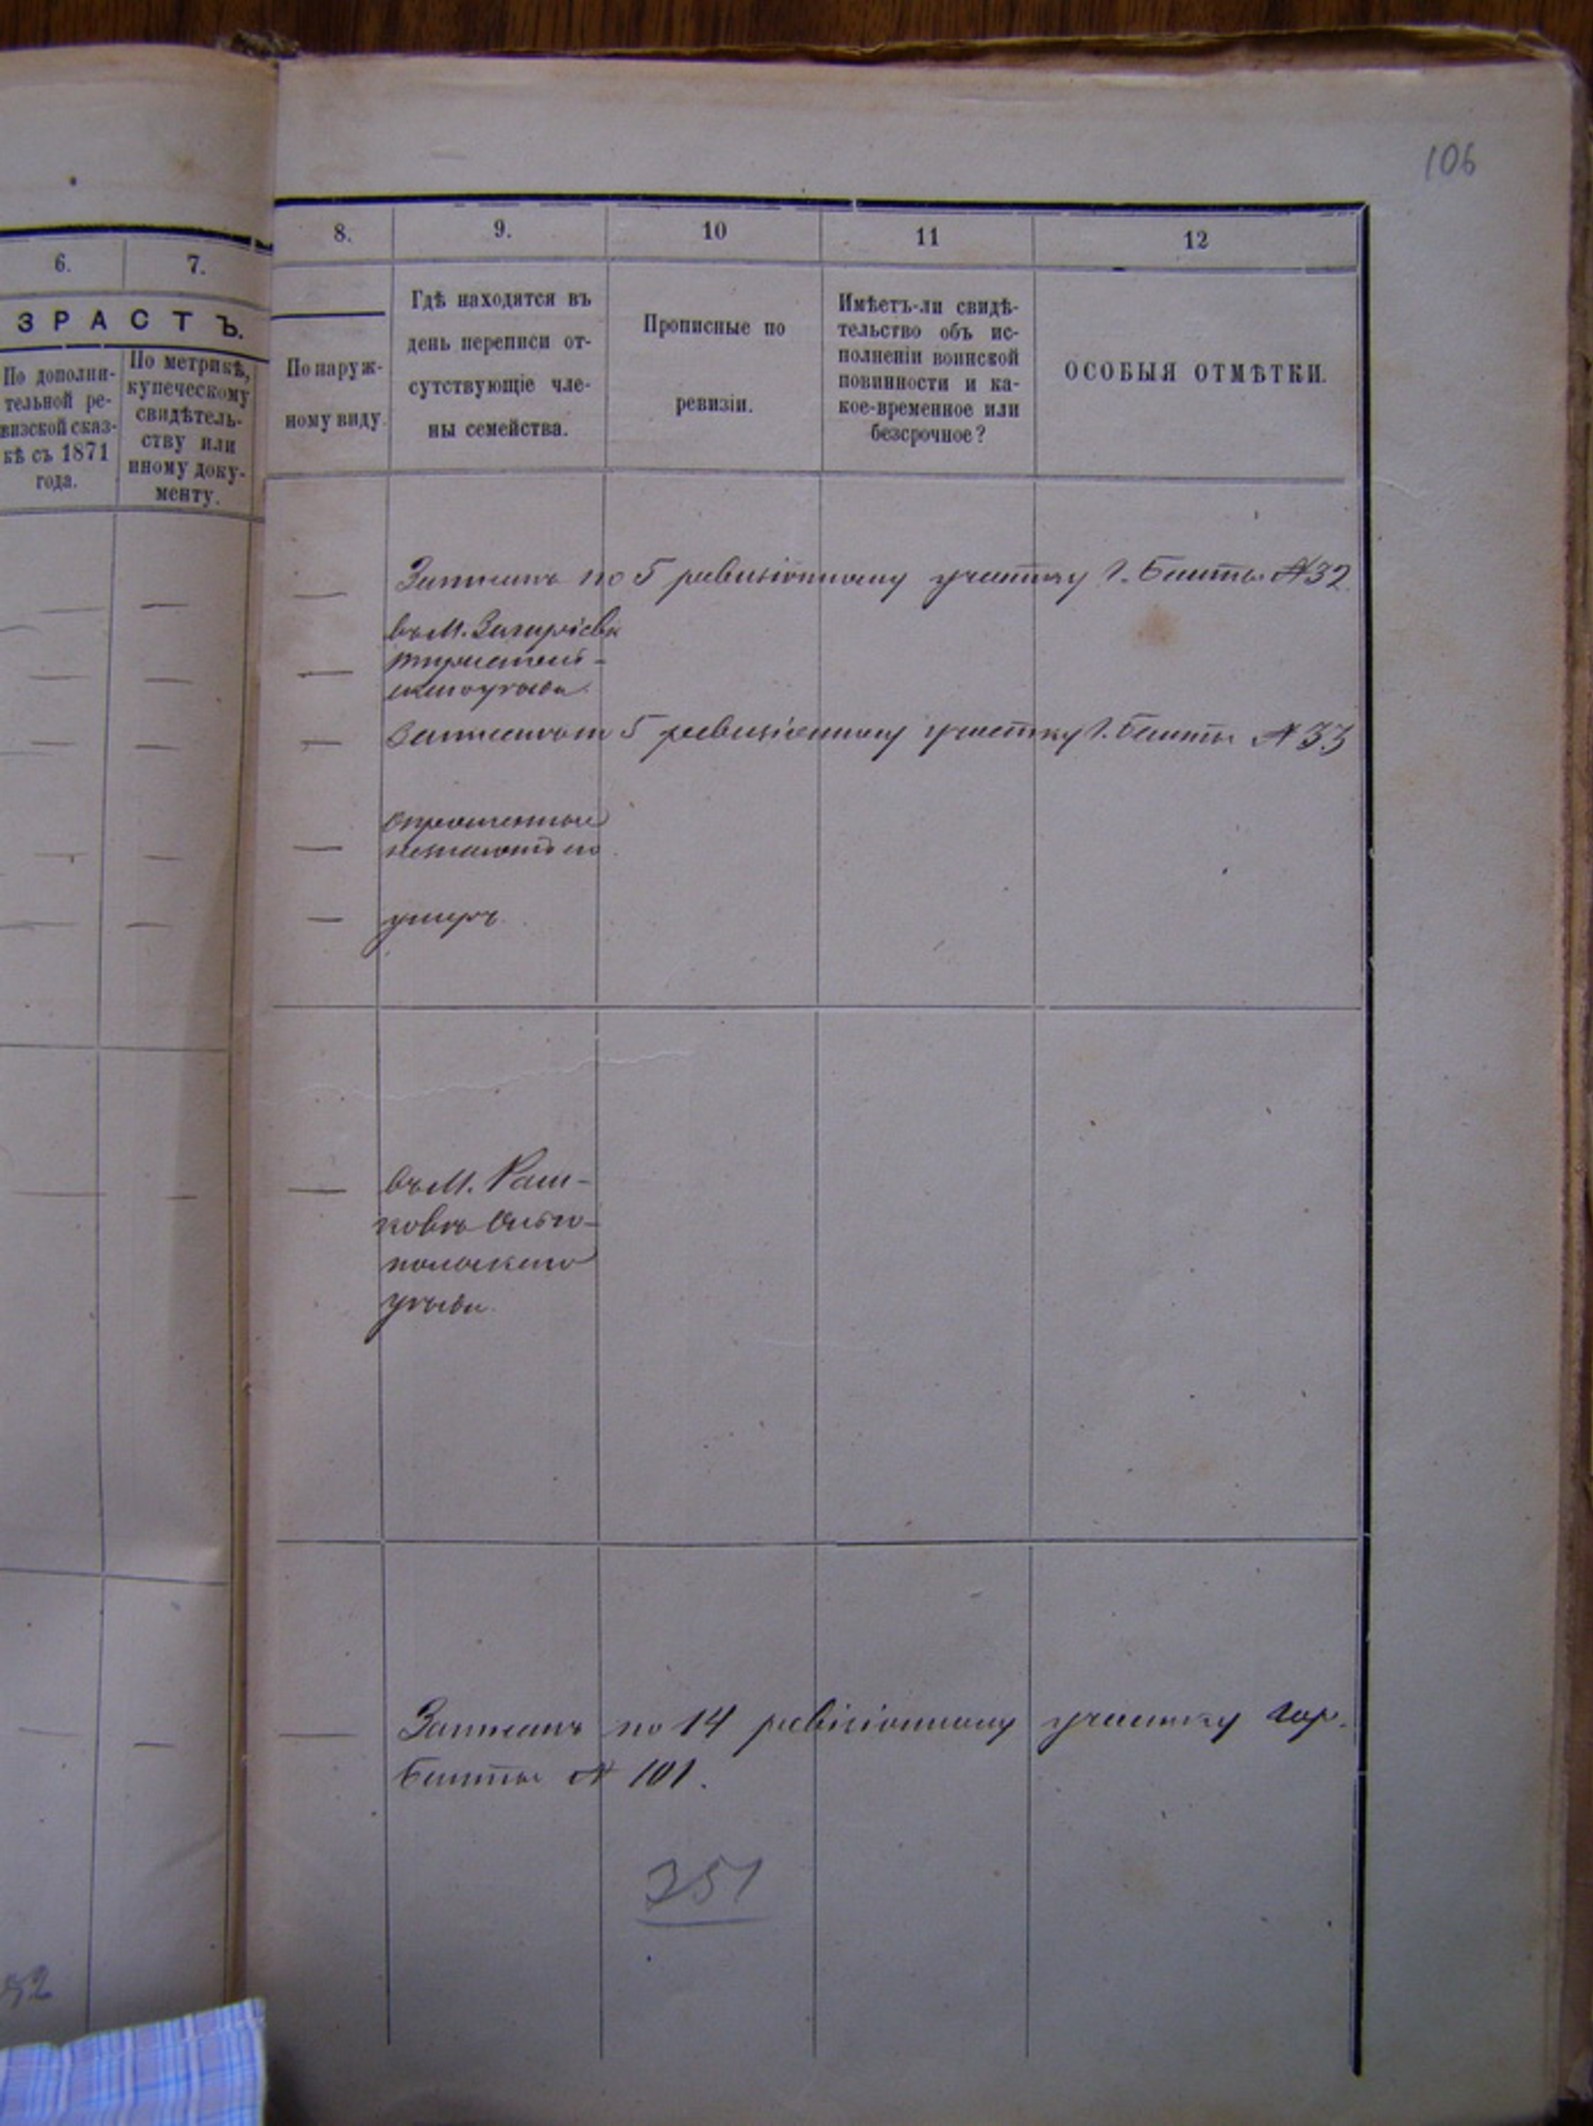 106
6.
7.
8.
9.
10
11
12
ЗРАСТЪ.
По дополни-
тельной ре-
визской сказ-
кѣ съ 1871
года.
По метрикѣ,
купеческому
свидѣтель-
ству или
иному доку-
менту.
По наруж-
ному виду.
Гдѣ находятся въ
день переписи от-
сутствующіе чле-
ны семейства.
Прописные по
ревизіи.
Имѣетъ-ли свидѣ-
тельство объ ис-
полненіи воинской
повинности и ка-
кое-временное или
безсрочное?
ОСОБЫЯ ОТМѢТКИ.
Записанъ по 5 ревизіонному участку г. Балты № 32
въ М.
уѣзда.
Записанъ по 5 ревизіонному участку г. Балты № 33
умеръ.
въ М. Раш-
ковѣ Ольго-
польскаго
уѣзда.
Записанъ по 14 ревизіонному участку гор.
Балты № 101.
351
52